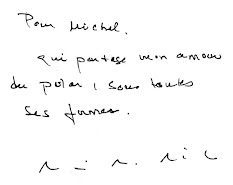 Pour Michel,
qui partage mon amour
du polar, sous toutes
ses formes.